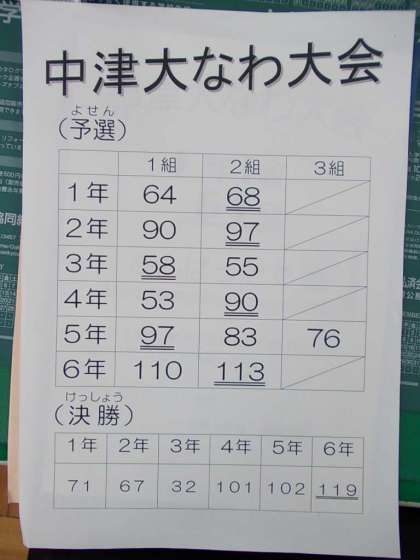 中津大なわ大会
よせん
（予選）
1組 2組 3組
1年 64 68
2年 90 97
3年 58 55
4年 53 90
5年 97 83 76
6年 110 113
けっしょう
（決勝）
1年 2年 3年 4年 5年 6年
71 67 32 101 102 119